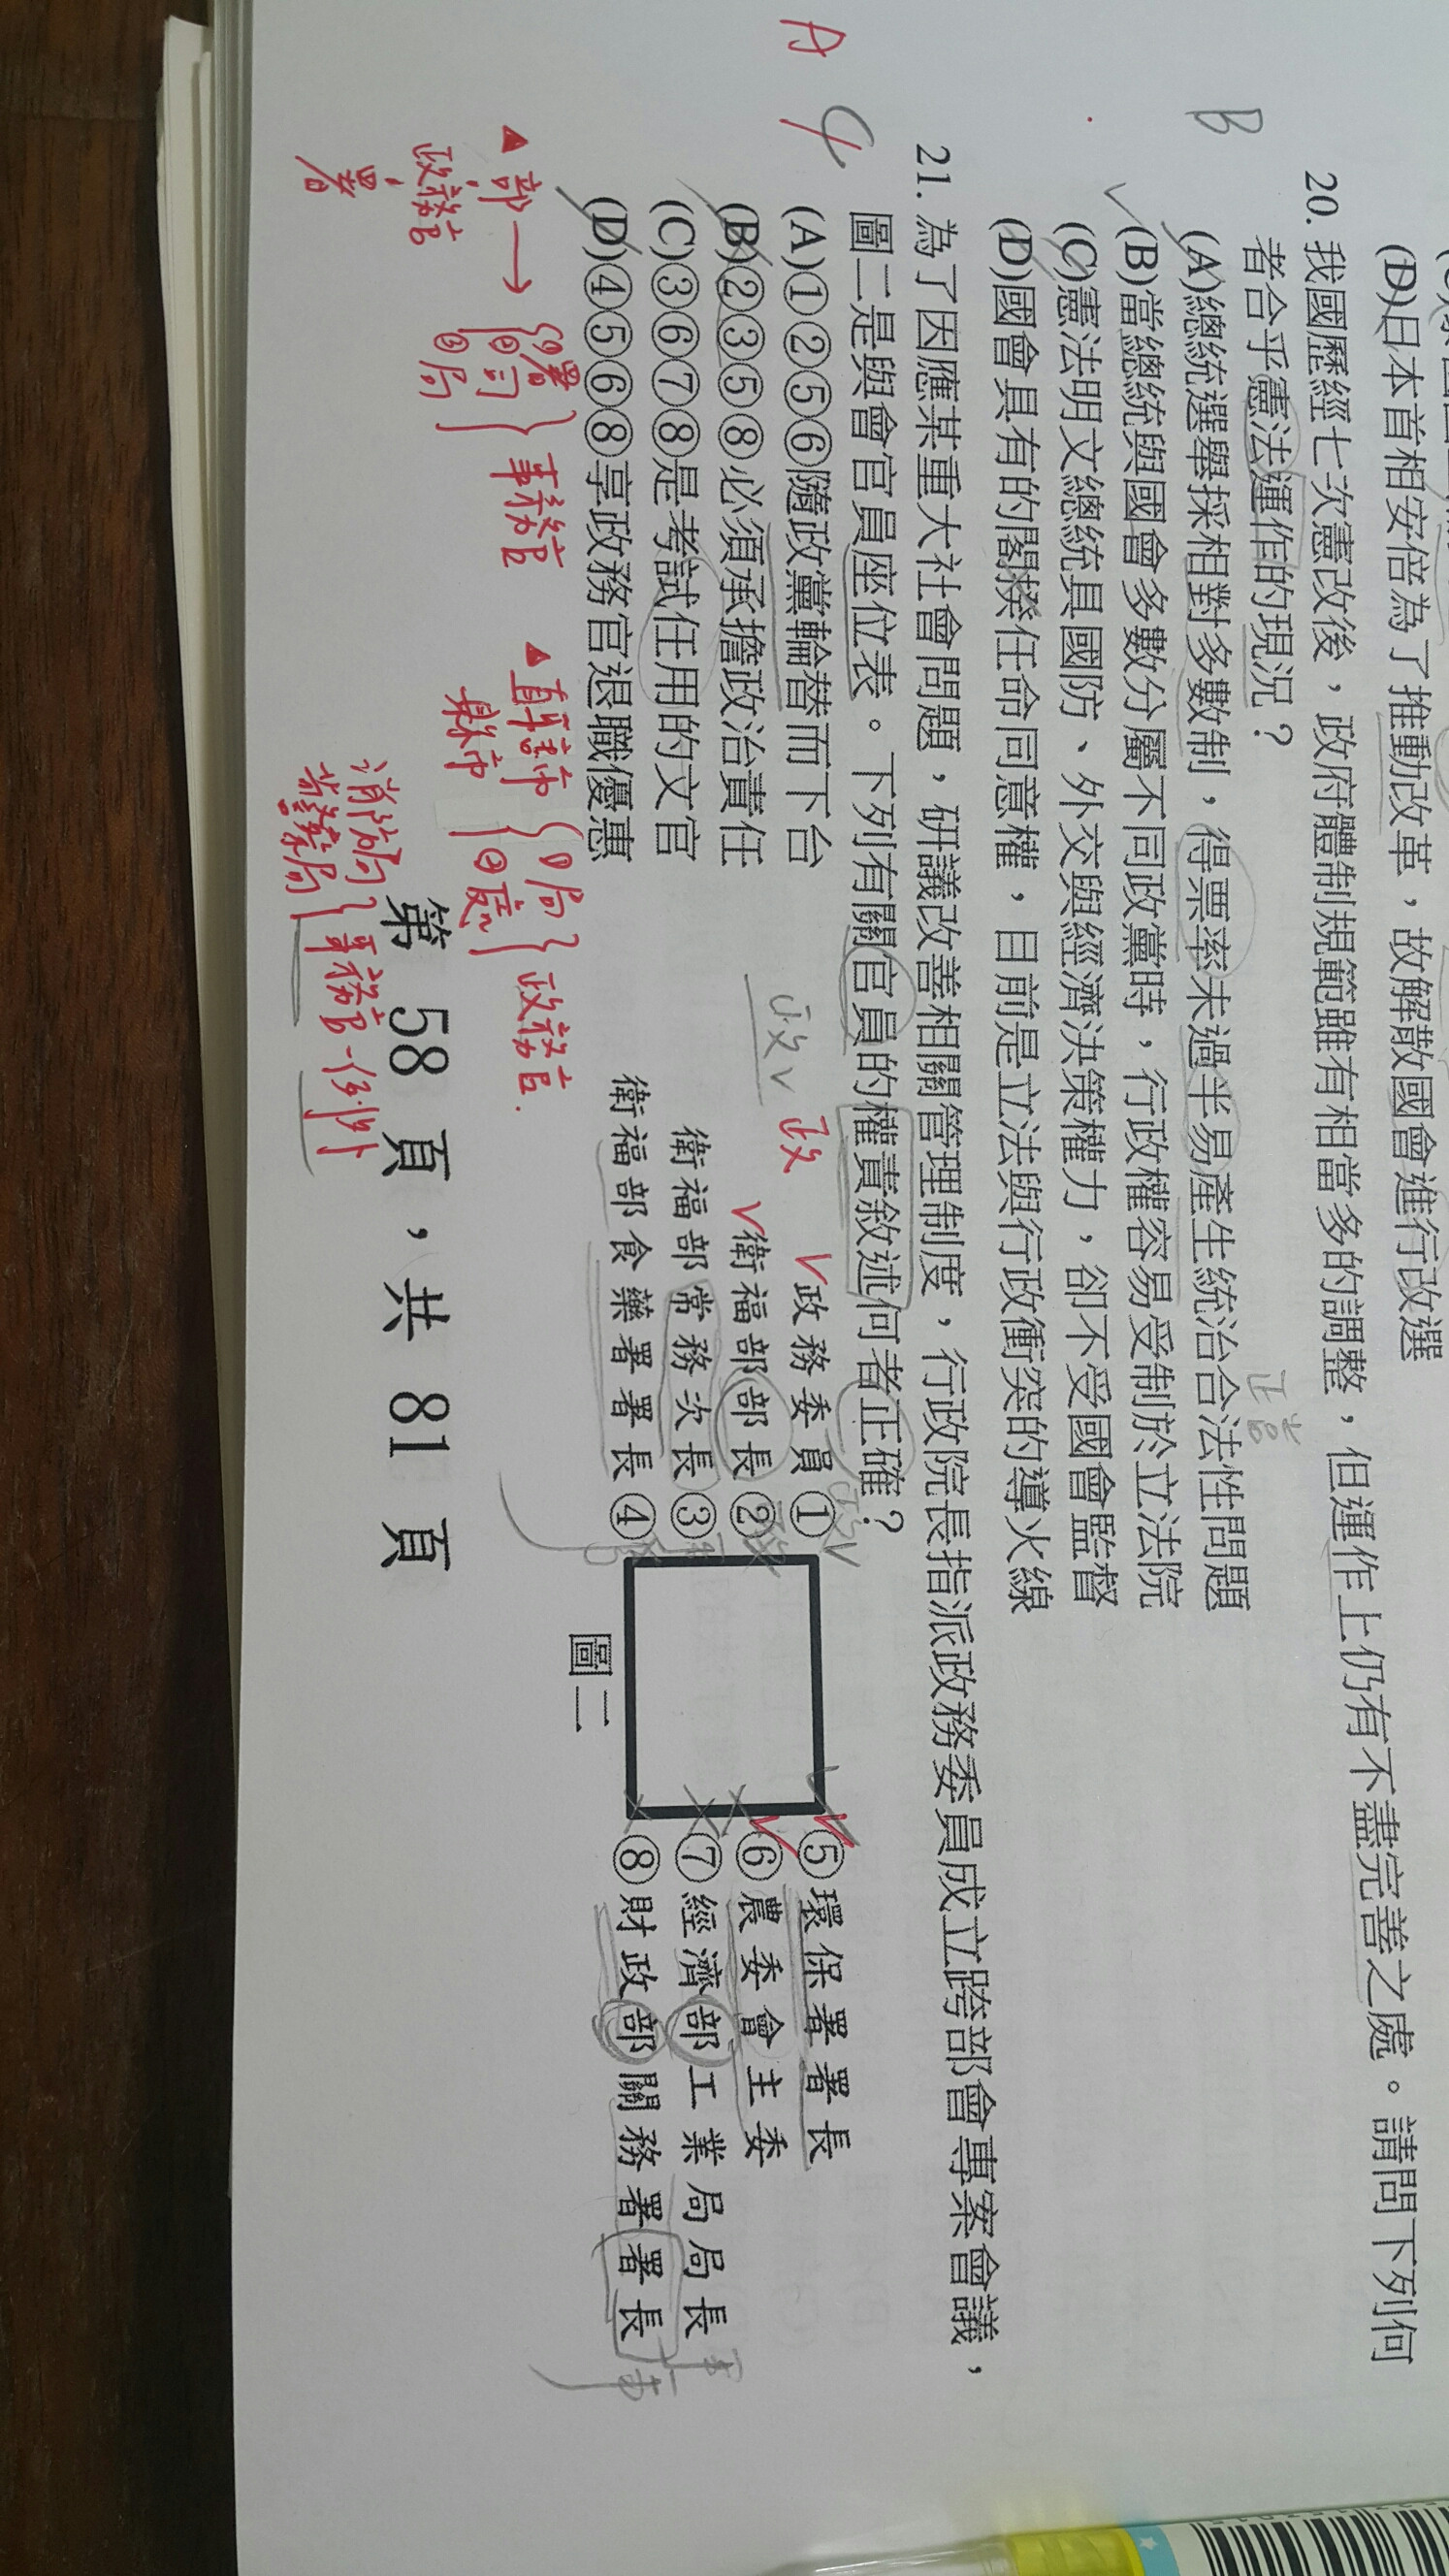 (D)日本首相安倍為了推動改革，故解散國會進行改選
20. 我國歷經七次憲改後，政府體制規範雖有相當多的調整，但運作上仍有不盡完善之處。請問下列何
者合乎憲法運作的現況？
B
(A)總統選舉採相對多數制，得票率未過半易產生統治合法性問題
(B)當總統與國會多數分屬不同政黨時，行政權容易受制於立法院
(C)憲法明文總統具國防、外交與經濟決策權力，卻不受國會監督
(D)國會具有的閣揆任命同意權，目前是立法與行政衝突的導火線
正當
21. 為了因應某重大社會問題，研議改善相關管理制度，行政院長指派政務委員成立跨部會專案會議，
圖二是與會官員座位表。下列有關官員的權責敘述何者正確？
A
(A)①②⑤⑥隨政黨輪替而下台
(B)②③⑤⑧必須承擔政治責任
(C)③⑥⑦⑧是考試任用的文官
(D)④⑤⑥⑧享政務官退職優惠
政
政
政務委員①
衛福部部長②
衛福部常務次長③
衛福部食藥署署長④
⑤環保署署長
⑥農委會主委
⑦經濟部工業局局長
⑧財政部關務署署長
圖二
▲部→
政務官
署
①署
②司
③局
事務官
▲直轄市
縣市
①局
②處
政務官.
消防局
警察局
事務官-例外
第 58 頁，共 81 頁